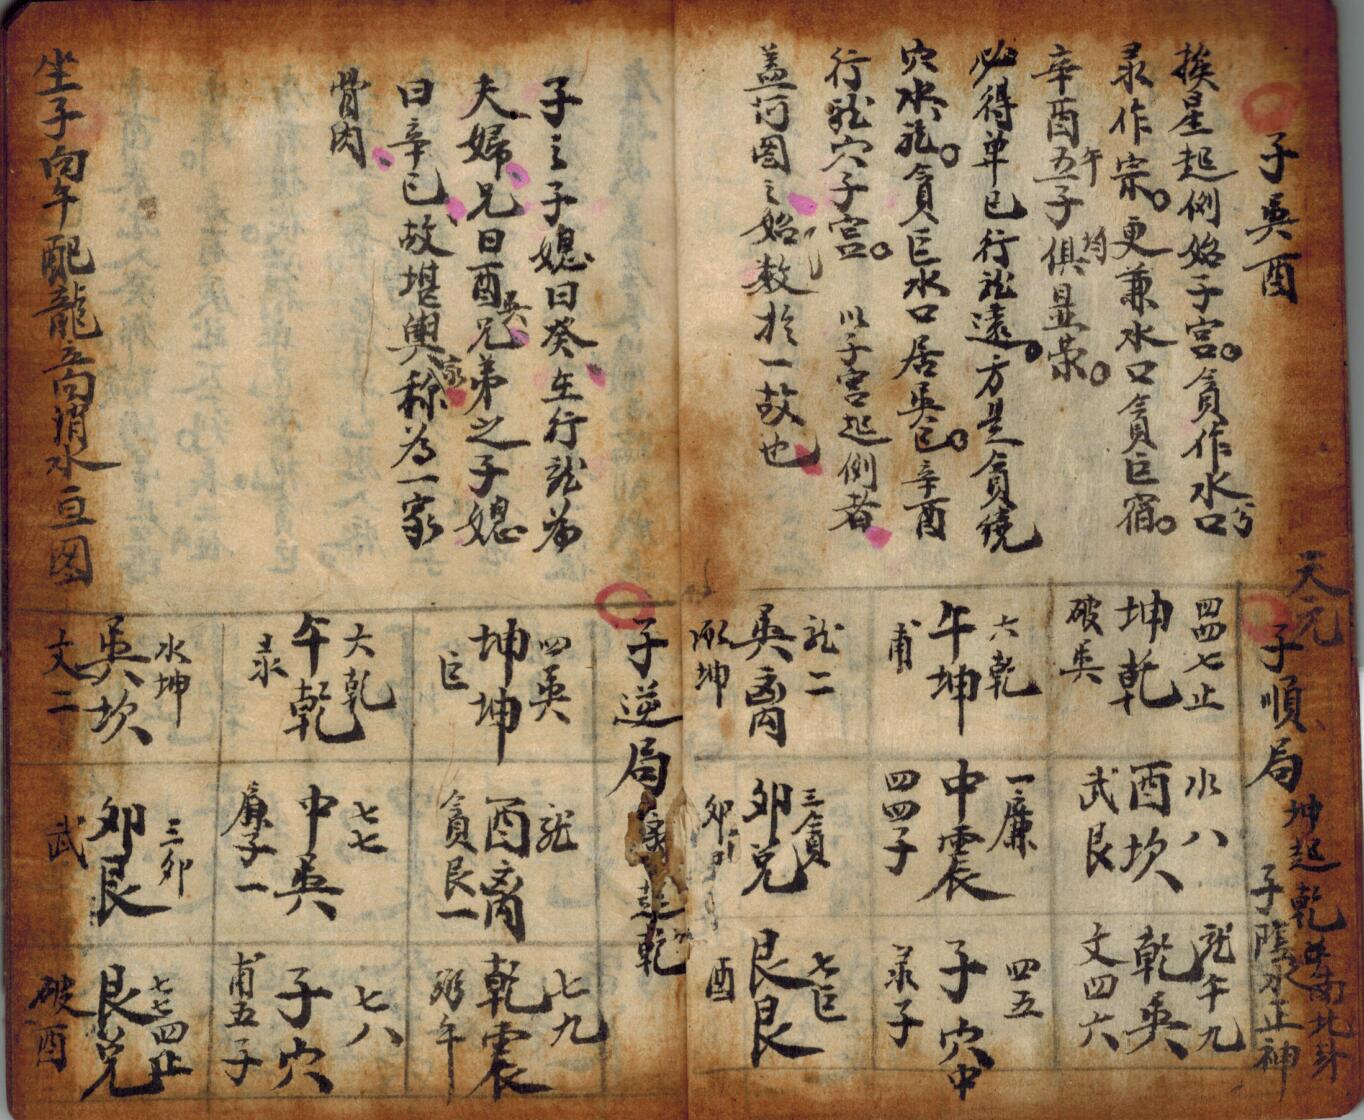 子巽酉
挨星起例始子宫。貪作水口
录作宗。更兼水口貪巨宿。
辛酉五子俱显荣。
午
均
必得单巳行龙遠。方是貪绕
穴水龙。貪巨水口居巽巳。辛酉
行龙穴子宫。以子宫起例者
盖河图之始数扵一故也
子之子媳曰癸在行龙為
夫婦兄曰酉兄弟之子媳
巽
曰辛巳故堪輿称為一家
家
骨肉
坐子向午配龍立向消水亘图
天元
子順局
坤起乾
子隂之水正神
四四七止
坤乾
破巽
六乾
午坤
甫
龙二
巽离
水八
酉坎
武艮
一廉
中震
四四子
三貪
卯兑
龙午九
乾巽
文四六
四五
子穴中
录子
七巨
艮艮
酉
子逆局
乾
四巽
坤坤
巨
大乾
午乾
录
水坤
巽坎
文二
龙
酉离
貪艮一
七七
中巽
廉子一
三卯
卯艮
武
七九
乾震
弼午
七八
子穴
甫五子
七七四止
艮兑
破酉